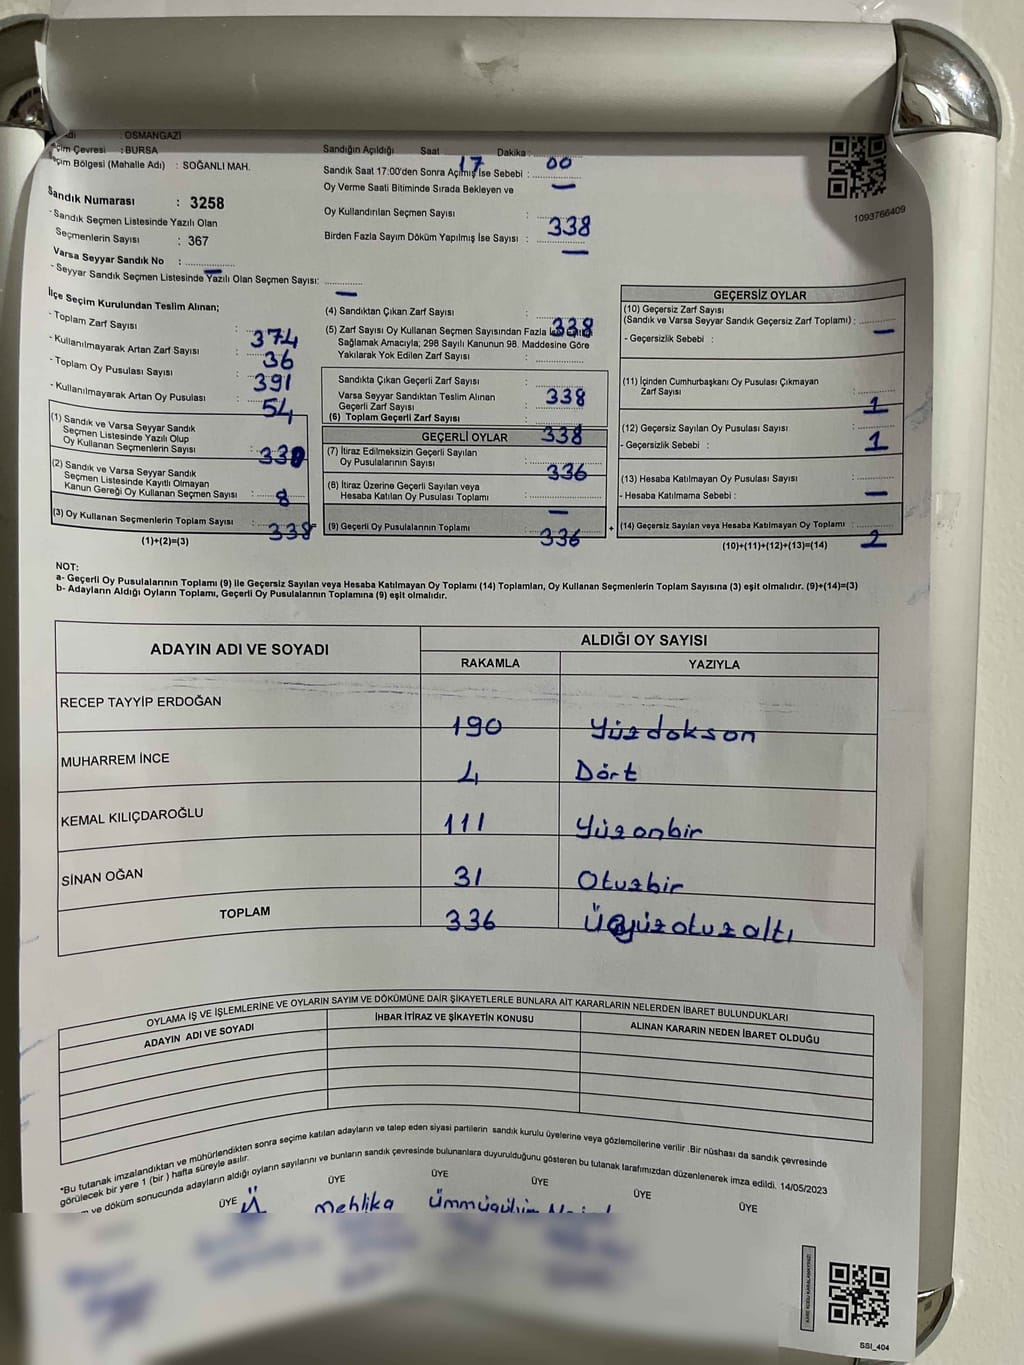 OSMANGAZİ
: BURSA
: SOĞANLI MAH.
Sandık Numarası : 3258
- Sandık Seçmen Listesinde Yazılı Olan
Seçmenlerin Sayısı : 367
Varsa Seyyar Sandık No : —
- Seyyar Sandık Seçmen Listesinde Yazılı Olan Seçmen Sayısı: —
Sandığın Açıldığı Saat 17 Dakika : 00
Sandık Saat 17:00'den Sonra Açılmış İse Sebebi : —
Oy Verme Saati Bitiminde Sırada Bekleyen ve
Oy Kullandırılan Seçmen Sayısı : 338
Birden Fazla Sayım Döküm Yapılmış İse Sayısı : —
1093766409
İlçe Seçim Kurulundan Teslim Alınan;
- Toplam Zarf Sayısı : 374
- Kullanılmayarak Artan Zarf Sayısı : 36
- Toplam Oy Pusulası Sayısı : 391
- Kullanılmayarak Artan Oy Pusulası : 54
(1) Sandık ve Varsa Seyyar Sandık
Seçmen Listesinde Yazılı Olup
Oy Kullanan Seçmenlerin Sayısı :
(2) Sandık ve Varsa Seyyar Sandık
Seçmen Listesinde Kayıtlı Olmayan
Kanun Gereği Oy Kullanan Seçmen Sayısı : 8
(3) Oy Kullanan Seçmenlerin Toplam Sayısı : 338
(1)+(2)=(3)
(4) Sandıktan Çıkan Zarf Sayısı : 338
(5) Zarf Sayısı Oy Kullanan Seçmen Sayısından Fazla İse
Sağlamak Amacıyla; 298 Sayılı Kanunun 98. Maddesine Göre
Yakılarak Yok Edilen Zarf Sayısı :
Sandıkta Çıkan Geçerli Zarf Sayısı : 338
Varsa Seyyar Sandıktan Teslim Alınan
Geçerli Zarf Sayısı :
(6) Toplam Geçerli Zarf Sayısı : 338
GEÇERLİ OYLAR
(7) İtiraz Edilmeksizin Geçerli Sayılan
Oy Pusulalarının Sayısı : 336
(8) İtiraz Üzerine Geçerli Sayılan veya
Hesaba Katılan Oy Pusulası Toplamı : —
(9) Geçerli Oy Pusulalarının Toplamı : 336
+
GEÇERSİZ OYLAR
(10) Geçersiz Zarf Sayısı
(Sandık ve Varsa Seyyar Sandık Geçersiz Zarf Toplamı) : —
- Geçersizlik Sebebi :
(11) İçinden Cumhurbaşkanı Oy Pusulası Çıkmayan
Zarf Sayısı : 1
(12) Geçersiz Sayılan Oy Pusulası Sayısı : 1
- Geçersizlik Sebebi :
(13) Hesaba Katılmayan Oy Pusulası Sayısı : —
- Hesaba Katılmama Sebebi :
(14) Geçersiz Sayılan veya Hesaba Katılmayan Oy Toplamı : 2
(10)+(11)+(12)+(13)=(14)
NOT:
a- Geçerli Oy Pusulalarının Toplamı (9) ile Geçersiz Sayılan veya Hesaba Katılmayan Oy Toplamı (14) Toplamları, Oy Kullanan Seçmenlerin Toplam Sayısına (3) eşit olmalıdır. (9)+(14)=(3)
b- Adayların Aldığı Oyların Toplamı, Geçerli Oy Pusulalarının Toplamına (9) eşit olmalıdır.
ADAYIN ADI VE SOYADI
ALDIĞI OY SAYISI
RAKAMLA YAZIYLA
RECEP TAYYİP ERDOĞAN 190 Yüzdokson
MUHARREM İNCE 4 Dört
KEMAL KILIÇDAROĞLU 111 Yüzonbir
SİNAN OĞAN 31 Otuzbir
TOPLAM 336 Üçyüzotuzaltı
OYLAMA İŞ VE İŞLEMLERİNE VE OYLARIN SAYIM VE DÖKÜMÜNE DAİR ŞİKAYETLERLE BUNLARA AİT KARARLARIN NELERDEN İBARET BULUNDUKLARI
ADAYIN ADI VE SOYADI
İHBAR İTİRAZ VE ŞİKAYETİN KONUSU
ALINAN KARARIN NEDEN İBARET OLDUĞU
"Bu tutanak imzalandıktan ve mühürlendikten sonra seçime katılan adayların ve talep eden siyasi partilerin sandık kurulu üyelerine veya gözlemcilerine verilir .Bir nüshası da sandık çevresinde
görülecek bir yere 1 (bir ) hafta süreyle asılır.
ve döküm sonucunda adayların aldığı oyların sayılarını ve bunların sandık çevresinde bulunanlara duyurulduğunu gösteren bu tutanak tarafımızdan düzenlenerek imza edildi. 14/05/2023
ÜYE ÜYE ÜYE ÜYE ÜYE ÜYE
Mehlika Ümmügülsüm
SSI_404